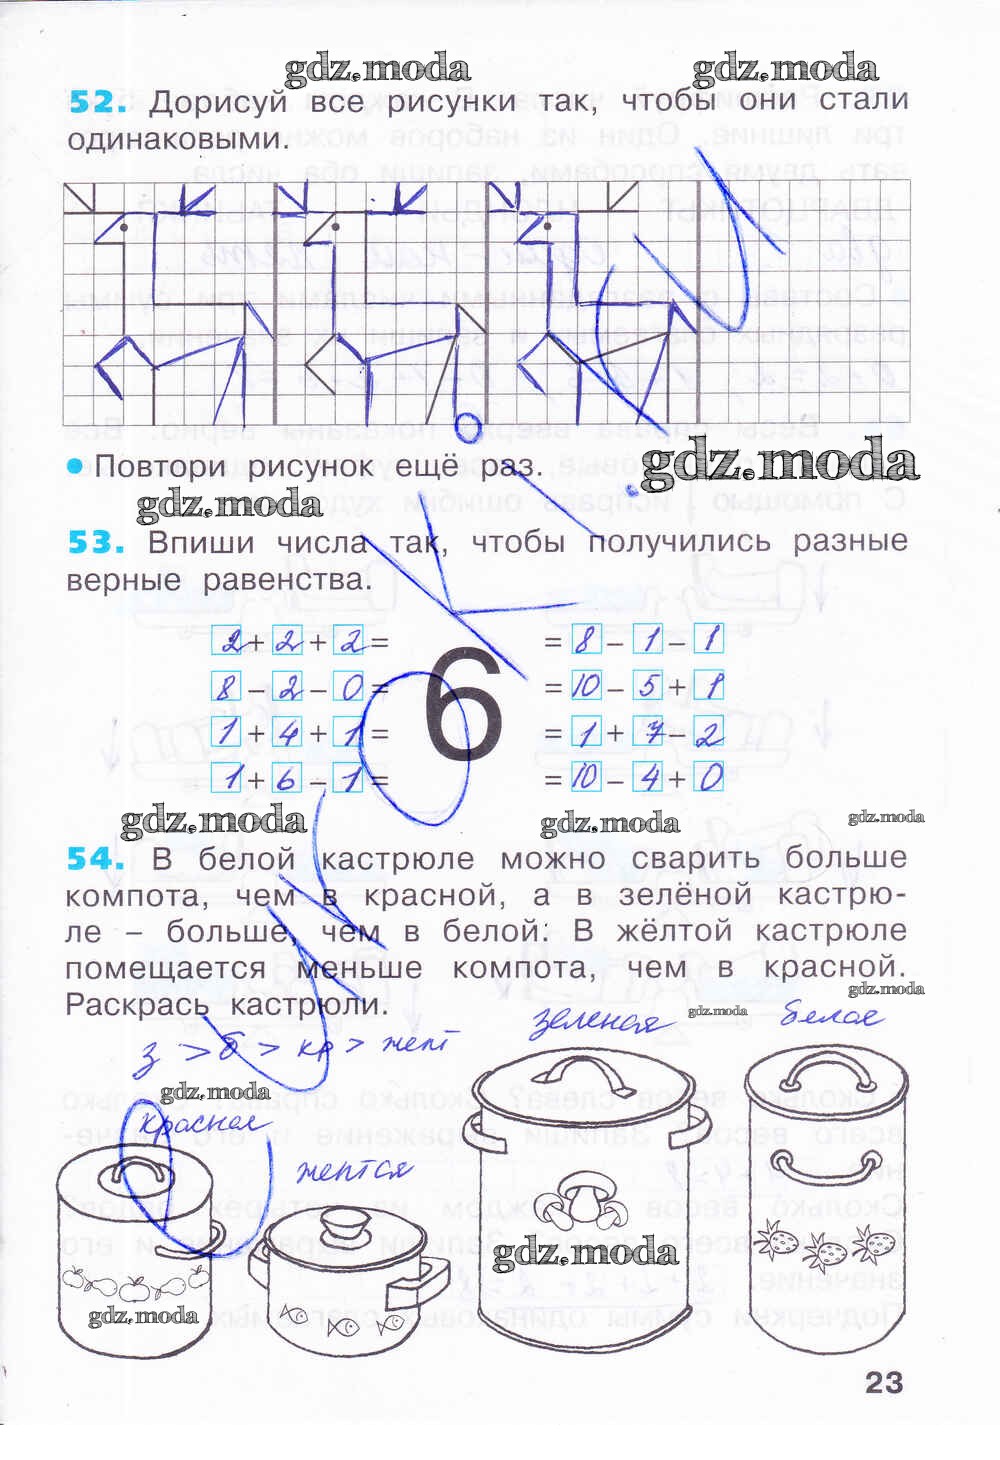 gdz.moda gdz.moda
52. Дорисуй все рисунки так, чтобы они стали
одинаковыми.
• Повтори рисунок ещё раз.
gdz.moda
gdz.moda
53. Впиши числа так, чтобы получились разные
верные равенства.
2 + 2 + 2 = 6 = 8 – 1 – 1
8 – 2 – 0 = = 10 – 5 + 1
1 + 4 + 1 = = 1 + 7 – 2
1 + 6 – 1 = = 10 – 4 + 0
gdz.moda gdz.moda gdz.moda
54. В белой кастрюле можно сварить больше
компота, чем в красной, а в зелёной кастрю-
ле – больше, чем в белой. В жёлтой кастрюле
помещается меньше компота, чем в красной.
gdz.moda
Раскрась кастрюли.
gdz.moda
зеленая белая
з > б > кр > жел
gdz.moda
красная
желтая
gdz.moda
gdz.moda
23